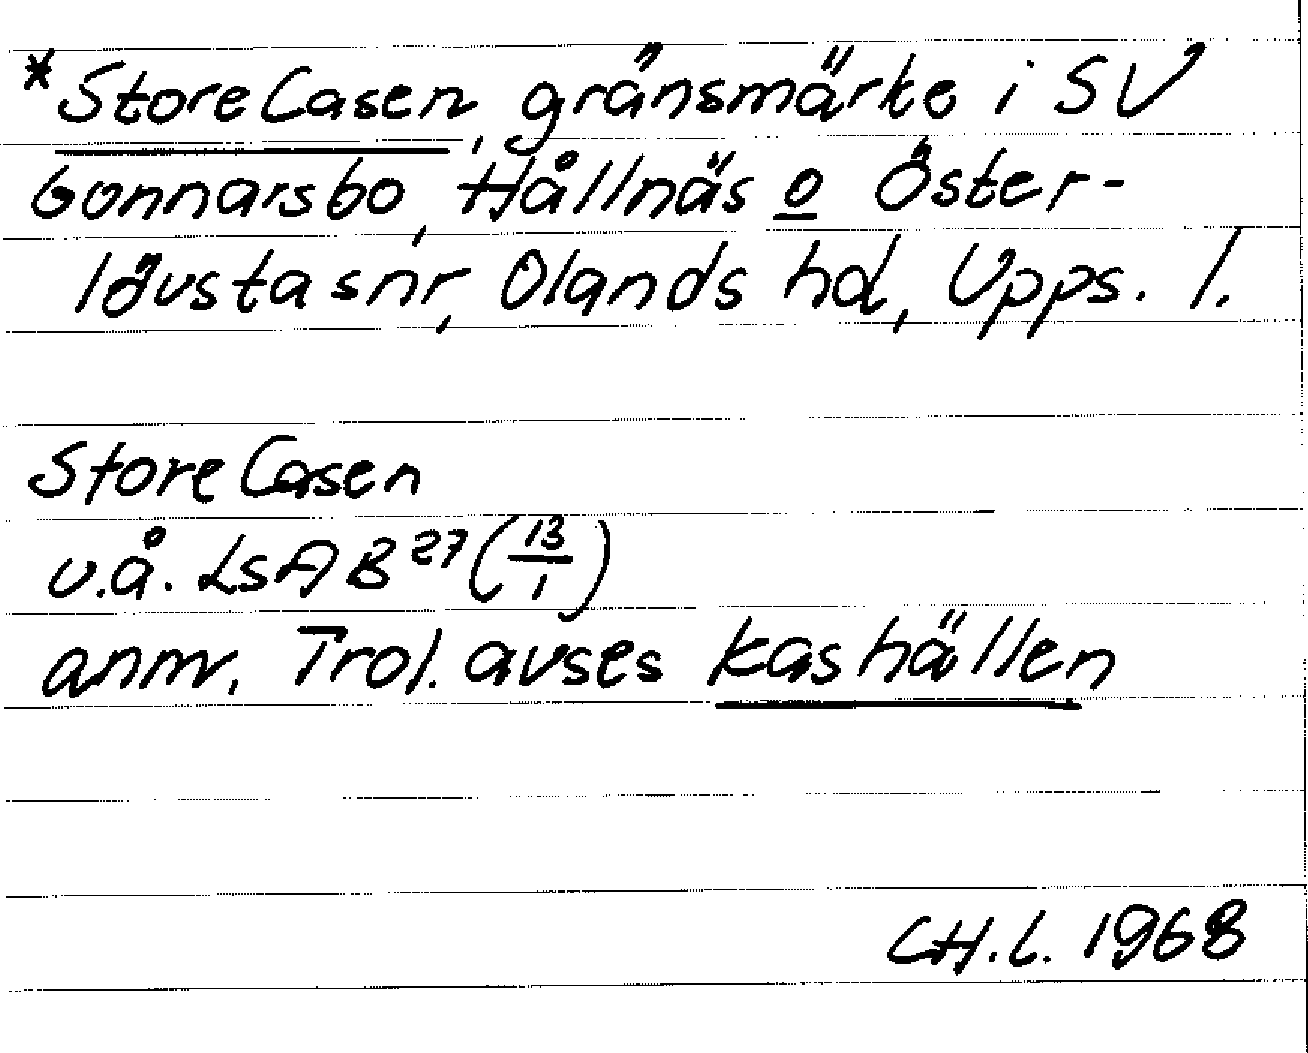 *Store Casen, gränsmärke i SV
Gonnarsbo, Hållnäs o Öster-
lövsta snr, Olands hd, Upps. l.
Store Casen
u.å. LSA B27 (13/1)
anm. Trol. avses kashällen
CH.L. 1968